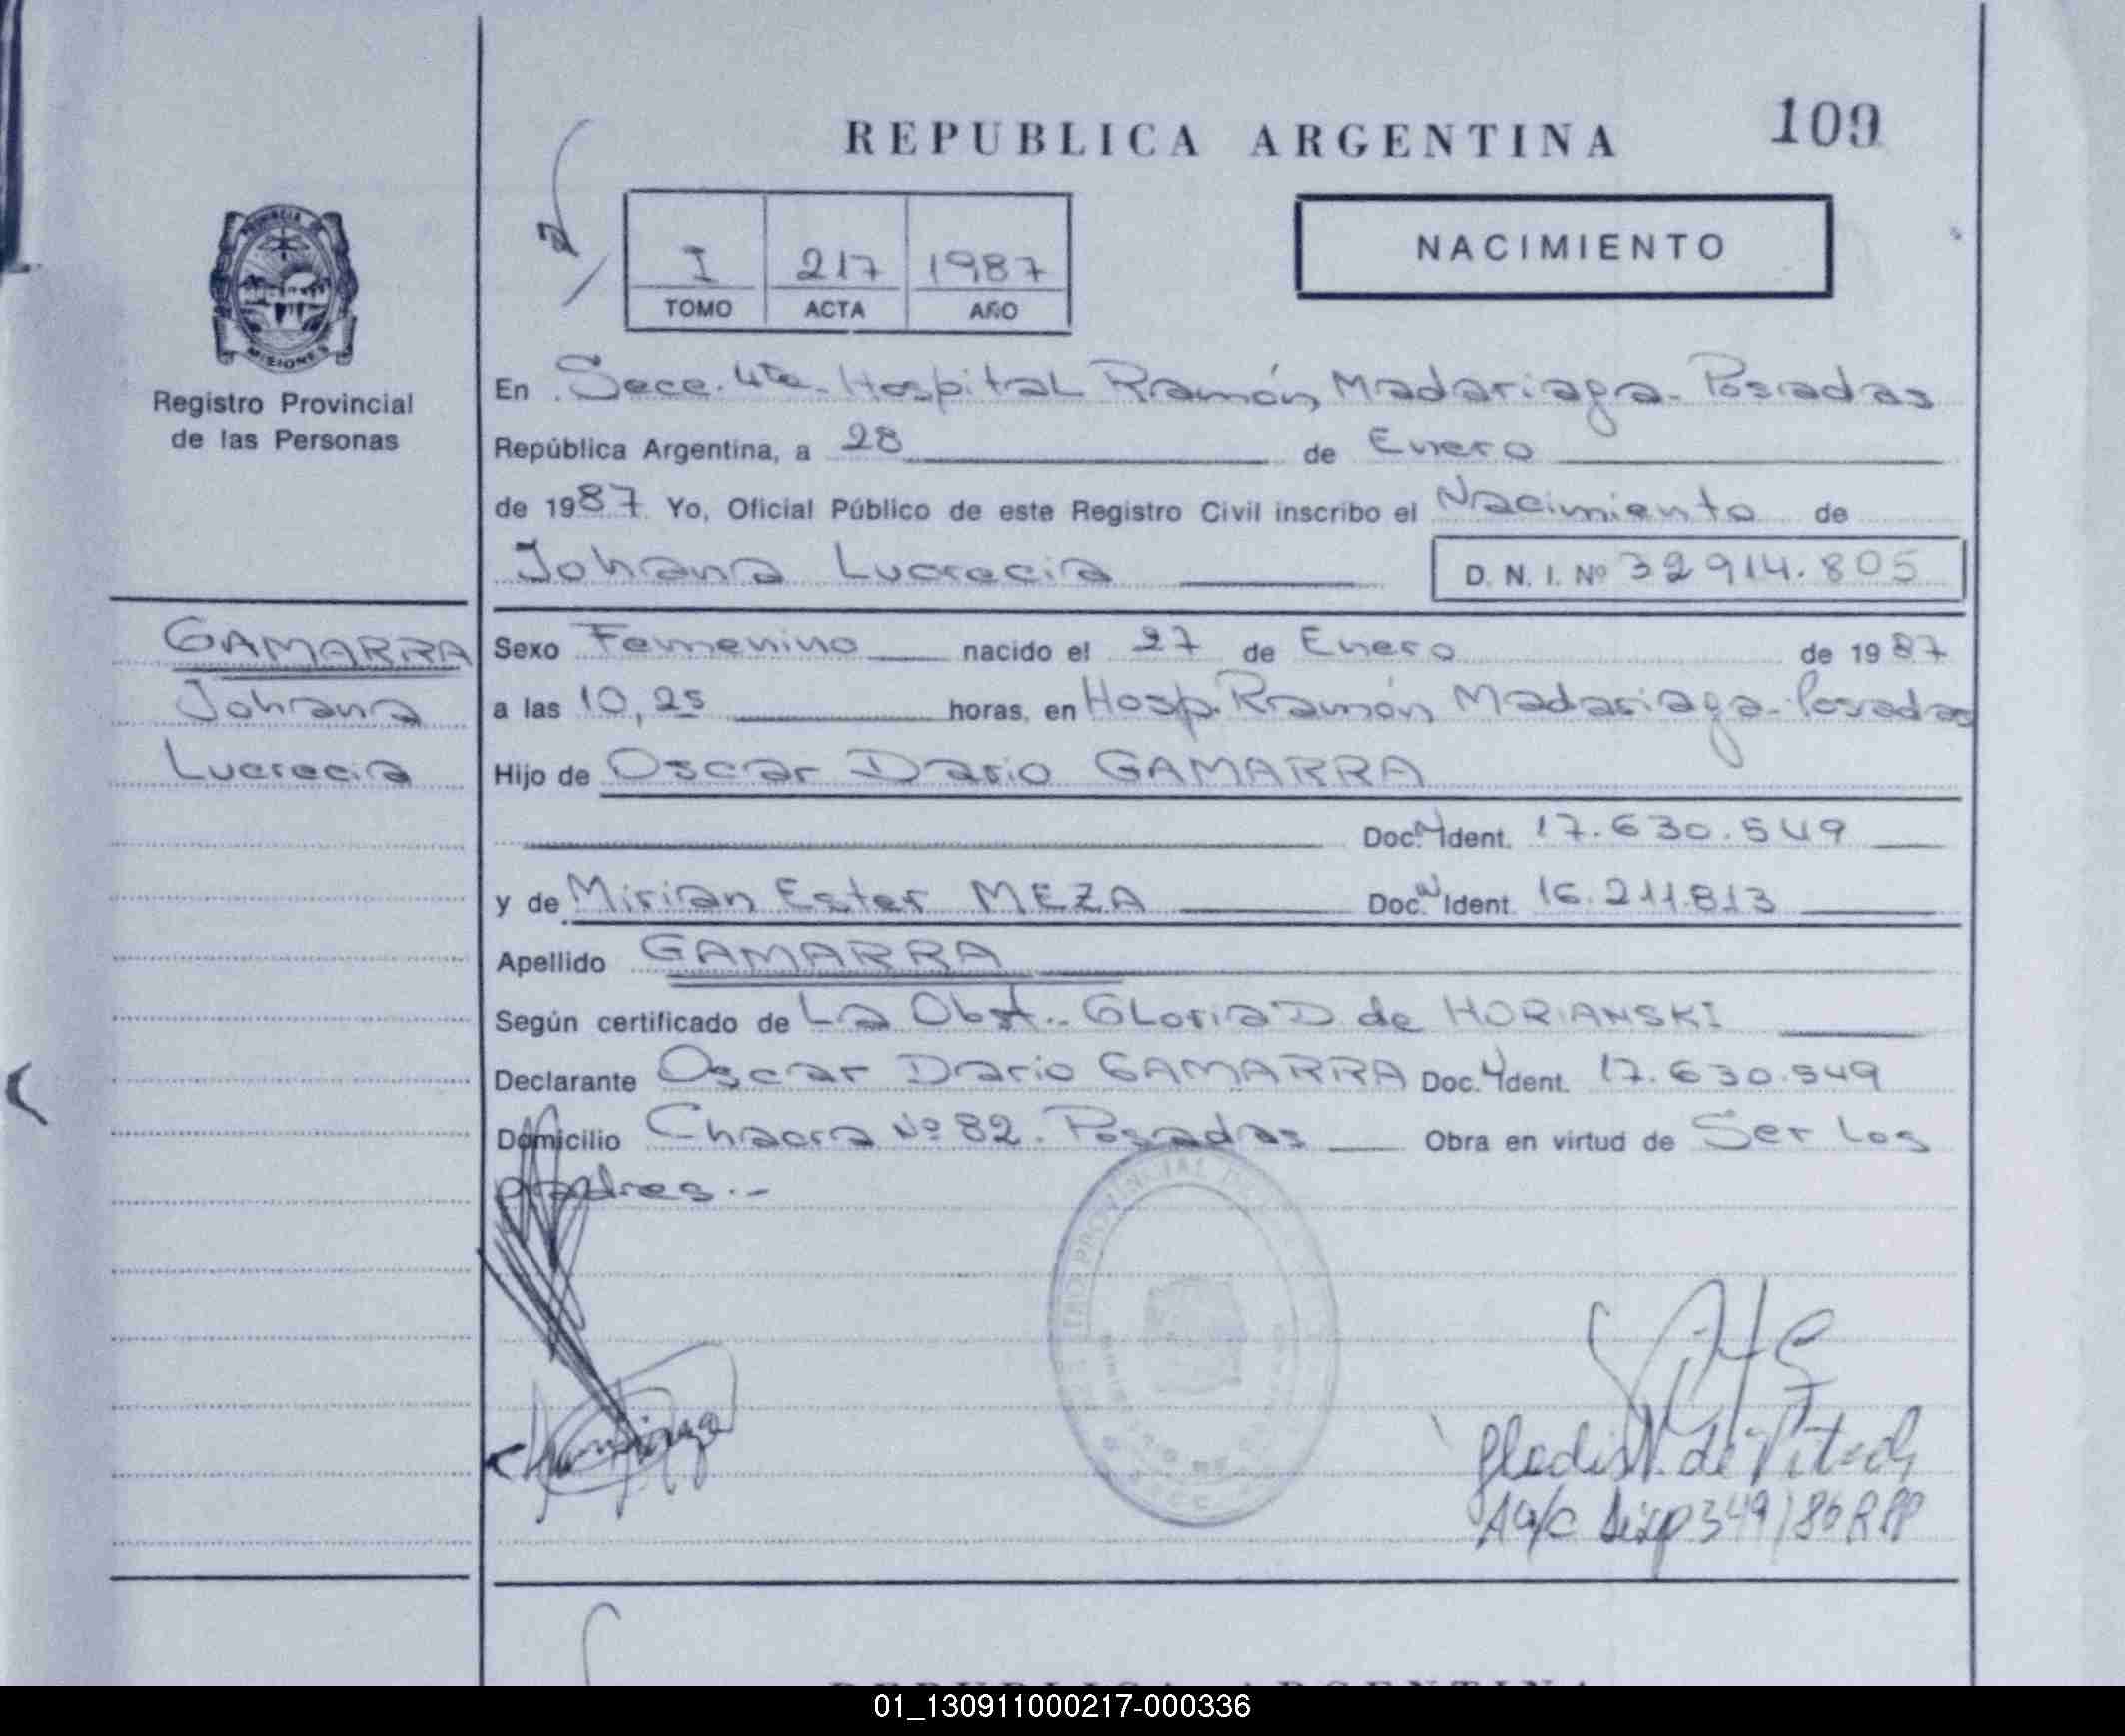 109
REPUBLICA ARGENTINA
I 217 1987
TOMO ACTA AÑO
NACIMIENTO
PROVINCIA DE
MISIONES
Registro Provincial
de las Personas
En Secc. 4ta. Hospital Ramón Madariaga - Posadas
República Argentina, a 28 de Enero
de 1987 Yo, Oficial Público de este Registro Civil inscribo el Nacimiento de
Johana Lucrecia D. N. I. Nº 32914.805
GAMARRA
Johana
Lucrecia
Sexo Femenino nacido el 27 de Enero de 1987
a las 10,25 horas, en Hosp. Ramón Madariaga - Posadas
Hijo de Oscar Dario GAMARRA
Doc. Ident. 17.630.549
y de Mirian Ester MEZA Doc. Ident. 16.211.813
Apellido GAMARRA
Según certificado de La Obst. Gloria D de HORIANSKI
Declarante Oscar Dario GAMARRA Doc. Ident. 17.630.549
Domicilio Chacra Nº 82. Posadas Obra en virtud de Ser los
padres.-
PROVINCIAL
A/c Disp 349/86 RPP
REPUBLICA ARGENTINA
01_130911000217-000336